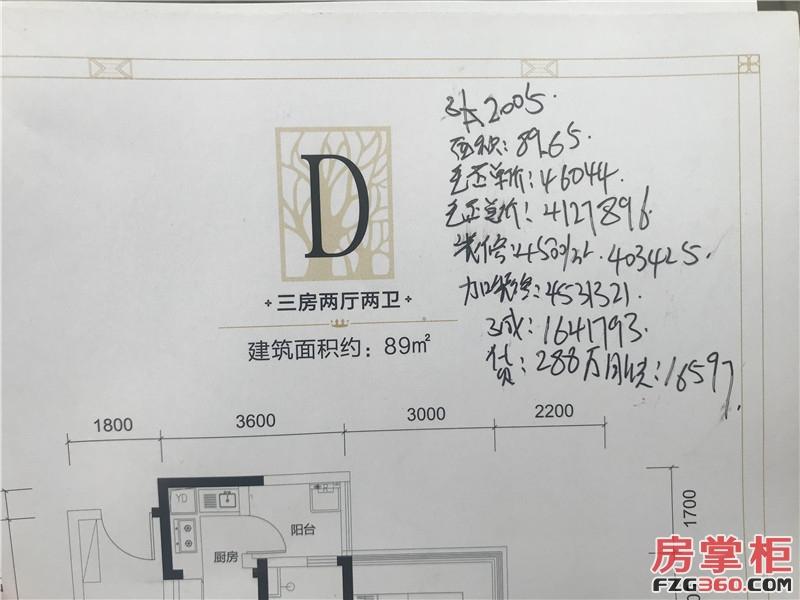 3栋A2005.
面积: 89.65.
毛坯单价: 46044.
毛坯总价: 4127896.
装修: 4500/㎡. 403425.
加装修: 4531321.
3成: 1641793.
贷: 288万 月供: 16597.
D
三房两厅两卫
建筑面积约: 89㎡
1800
3600
3000
2200
1700
YD
厨房
阳台
房掌柜
FZG360.com